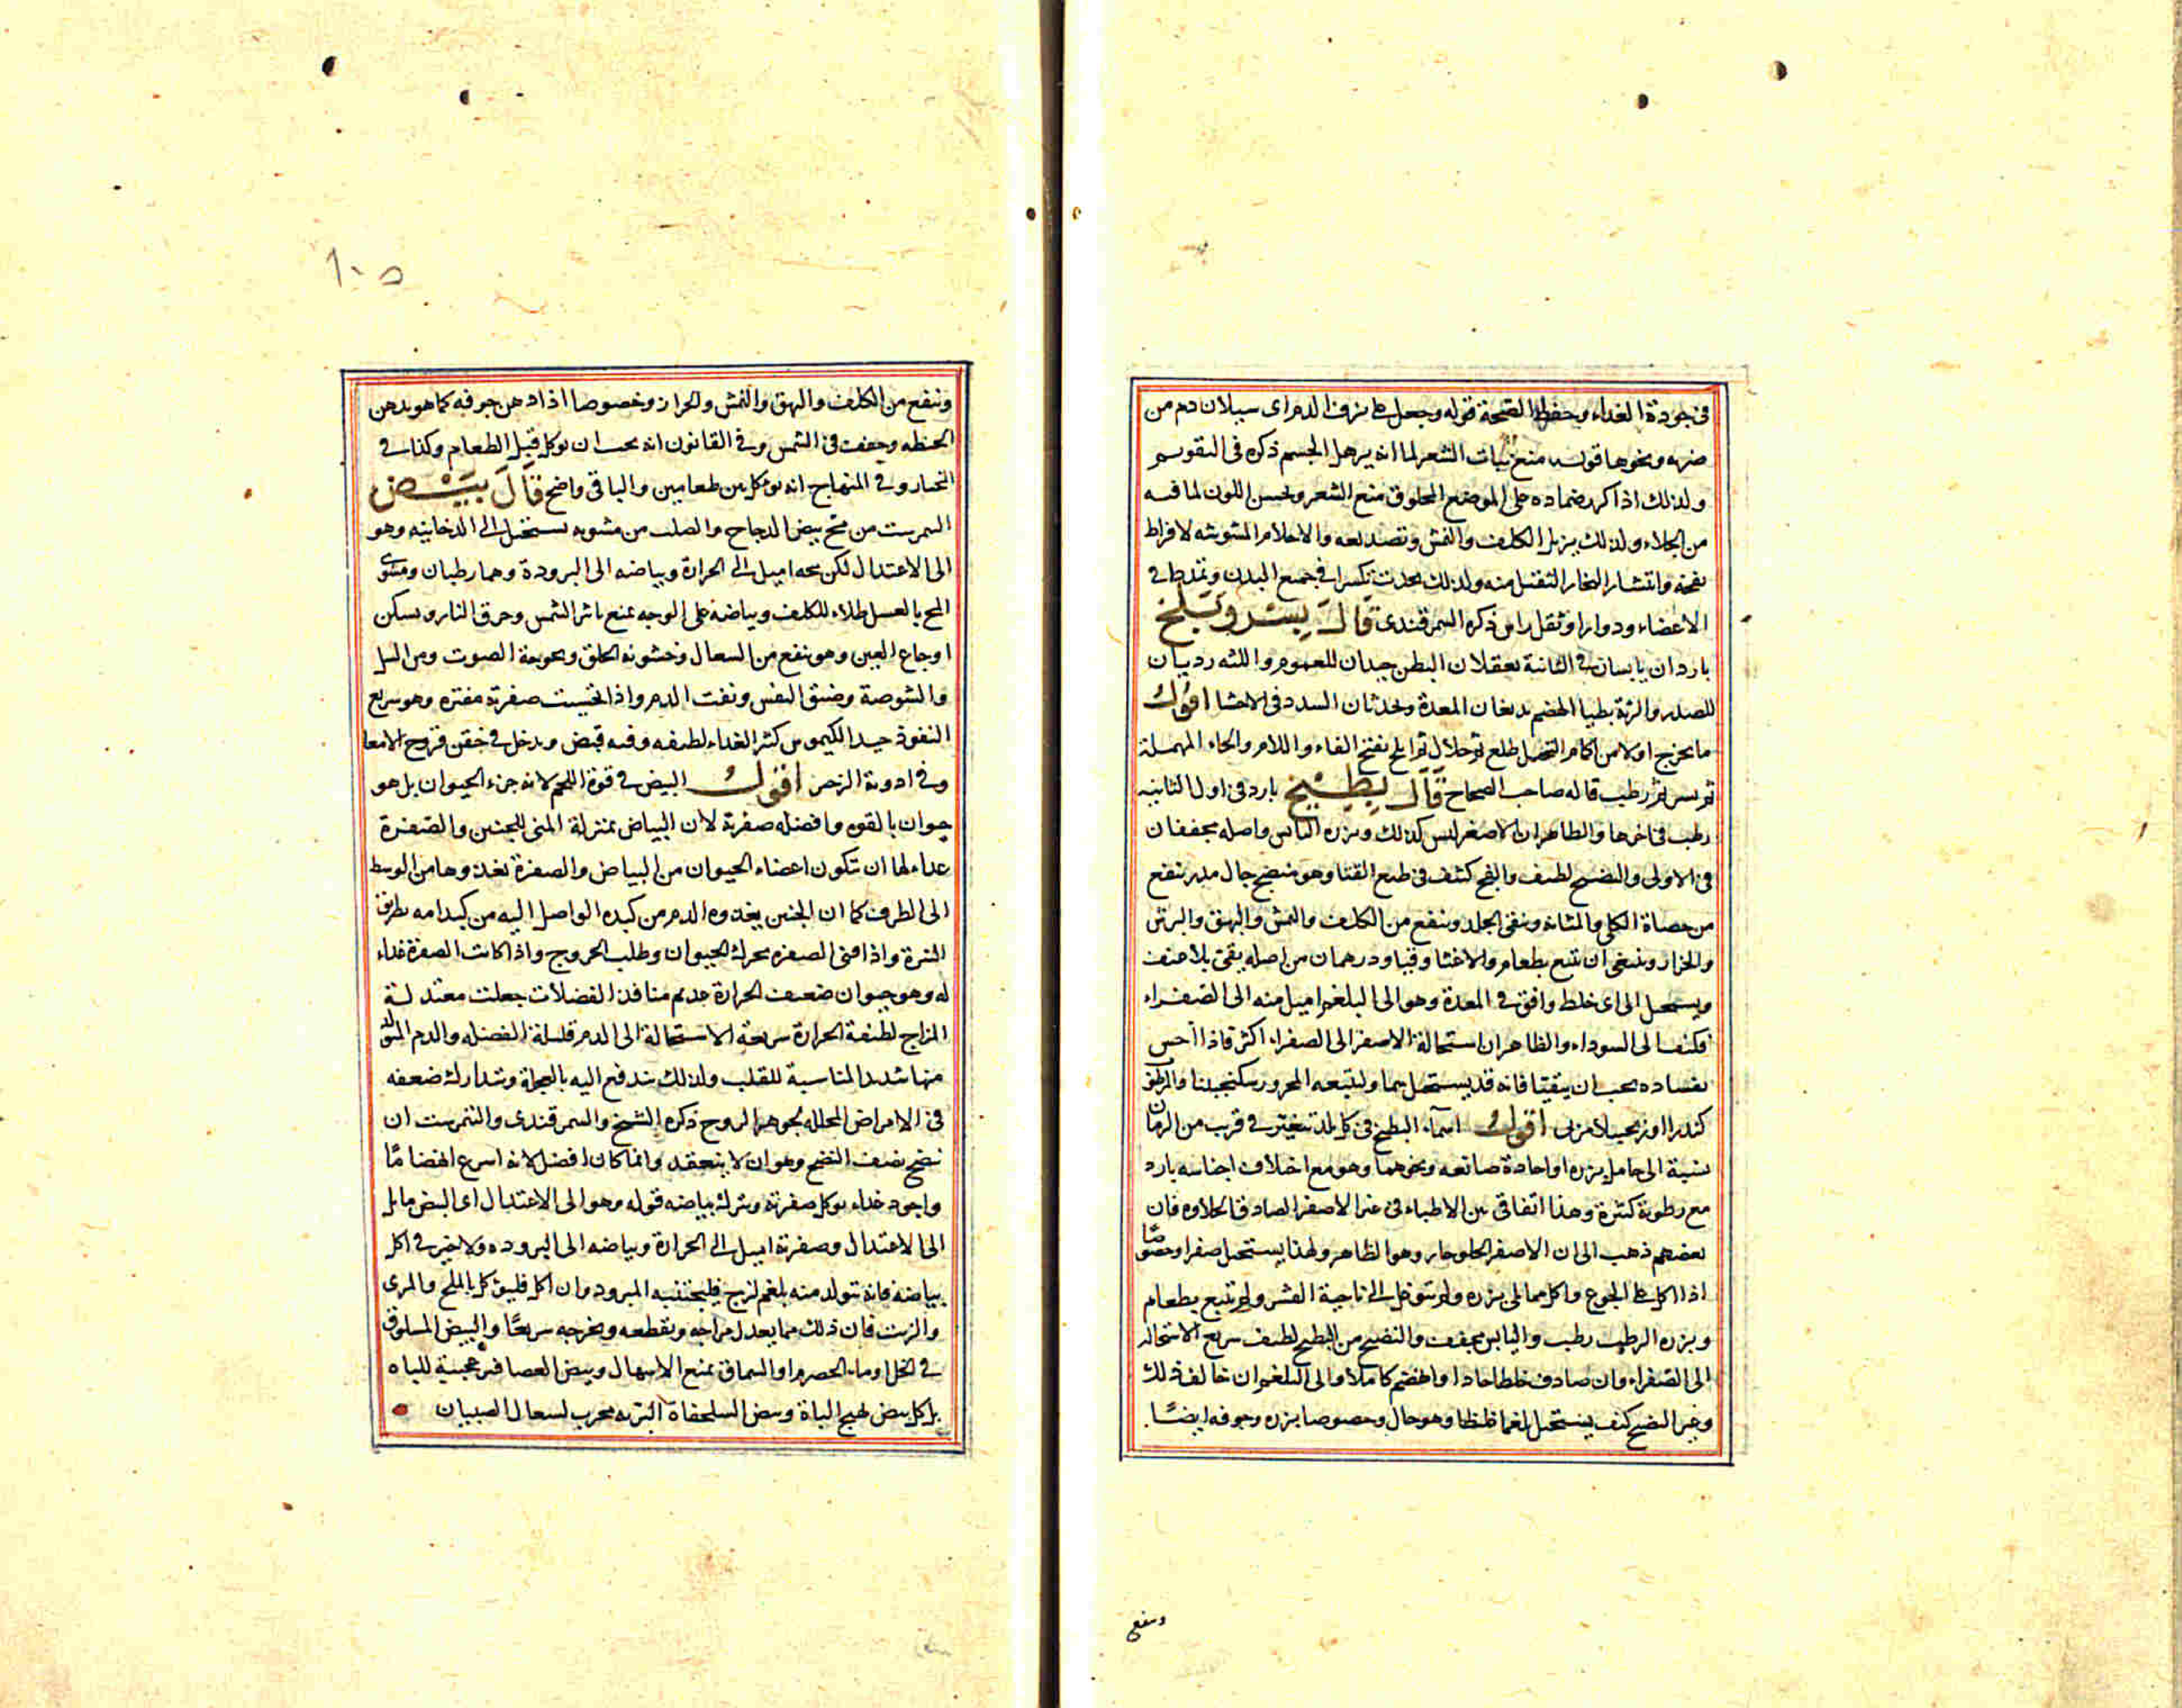 فى جودة الغداء وحفظ الصحة قوله وجعل على نزف الدم اى سيلان دم من
ضربه ونحوها قوله منع نبات الشعر لما انه يرهل الجسم ذكره فى التقويم
ولذلك اذا كرر ضماده على الموضع المحلوق منع الشعر ويحسن اللون لما فيه
من الجلاء ولذلك يزيل الكلف والنمش وتصديعه والاحلام المشوشه لافراط
نفخه وانتشار البخار الثقيل منه ولذلك يحدث تكسرا فى جميع البدن وتمددا فى
الاعضاء ودوارا وثقل راس ذكره السمرقندى قال بسر وبلح
باردان يابسان فى الثانية يعقلان البطن جيدان للعمور واللثه رديان
للصدر والرئة بطيا الهضم يدبغان المعدة ويحدثان السدد فى الاحشا اقول
ما يخرج اولا من اكمام النخل طلع ثم خلال ثم بلح بفتح الفاء واللام والحاء المهملة
ثم بسر ثم رطب قاله صاحب الصحاح قال بطيخ بارد فى اول الثانيه
رطب فى اخرها والظاهر ان الاصفر ليس كذلك وبزره اليابس واصله يجففان
فى الاولى والنضيج لطيف والفج كثيف فى طبع القثا وهو منضج جال مدر ينفع
من حصاة الكلى والمثانه وينقى الجلد وينفع من الكلف والنمش والبهق والبرش
والحزاز وينبغى ان يتبع بطعام والا غثا وقيا ودرهمان من اصله يقئ بلا عنف
ويستحيل الى اى خلط وافق فى المعدة وهو الى البلغم اميل منه الى الصفراء
فكيف الى السوداء والظاهر ان استحالة الاصفر الى الصفراء اكثر فاذا احس
بفساده يجب ان يتقيا فانه قد يستحيل سما وليتبعه المحرور سكنجبينا والمرطوب
كندرا او زنجبيلا مربى اقول اسماء البطيخ فى كل بلد تتغير فى قريب من الزمان
نسبة الى حامل بزره او احادة صانعه ونحوهما وهو مع اختلاف اجناسه بارد
مع رطوبة كثيرة وهذا اتفاقى بين الاطباء فى غير الاصفر الصادق الحلاوه فان
بعضهم ذهب الى ان الاصفر الحلو حار وهو الظاهر ولهذا يستحيل صفرا وخصوصا
اذا اكل على الجوع واكل مما يلى بزره ولم يتوغل الى ناحية القشر ولم يتبع بطعام
وبزره الرطب رطب واليابس يجفف والنضيج من البطيخ لطيف سريع الاستحاله
الى الصفراء وان صادف خلطا حادا وانهضم كاملا والى البلغم ان خالف ذلك
وغير النضيج كثيف يستحيل بلغما غليظا وهو جال وخصوصا بزره وجوفه ايضًا
وينفع
١٠٥
وينفع من الكلف والبهق والنمش والحزاز وخصوصا اذا دهن جوفه كما هو بدهن
الحنطه وجفف فى الشمس وفى القانون انه يجب ان يوكل قبل الطعام وكذا فى
المختار وفى المنهاج انه يؤكل بين طعامين والباقى واضح قال بيض
النمرشت من مح بيض الدجاج والصلب من مشويه يستحيل الى الدخانيه وهو
الى الاعتدال لكن محه اميل الى الحرارة وبياضه الى البرودة وهما رطبان ومشوى
المح بالعسل طلاء للكلف وبياضه على الوجه يمنع تاثر الشمس وحرق النار ويسكن
اوجاع العين وهو ينفع من السعال وخشونه الحلق وبحوحة الصوت ومن السل
والشوصة وضيق النفس ونفث الدم واذا تحسيت صفرته مفتره وهو سريع
النفوذ جيد الكيموس كثير الغداء لطيفه وفيه قبض ويدخل فى حقن قروح الامعا
وفى ادوية الزحير اقول البيض فى قوة اللحم لانه جزء الحيوان بل هو
حيوان بالقوه وافضله صفرته لان البياض بمنزلة المنى للجنين والصفرة
غداء لها ان تكون اعضاء الحيوان من البياض والصفرة تغذوها من الوسط
الى الطرف كما ان الجنين يغدوه الدم من كبده الواصل اليه من كبد امه بطريق
السرة واذا فنى الصفره تحرك الحيوان وطلب الخروج واذا كانت الصفرة غداء
له وهو حيوان ضعيف الحرارة عديم منافذ الفضلات جعلت معتدلة
المزاج لطيفة الحرارة سريعة الاستحالة الى الدم قليلة الفضله والدم المتولد
منها شديد المناسبة للقلب ولذلك يندفع اليه بالعجلة ويتدارك ضعفه
فى الامراض المحلله لجوهر الروح ذكره الشيخ والسمرقندى والنمرشت ان
نضج نصف النضج وهو ان لا ينعقد وانما كان افضل لانه اسرع انهضامًا
واجود غداء يوكل صفرته ويترك بياضه قوله وهو الى الاعتدال اى البيض مايل
الى الاعتدال وصفرته اميل الى الحرارة وبياضه الى البروده ولا خير فى اكل
بياضه فانه يتولد منه بلغم لزج فليجتنبه المبرود وان اكل فليوكل بالملح والمرى
والزيت فان ذلك مما يعدل مزاجه ويقطعه ويخرجه سريعًا والبيض المسلوق
فى الخل او ماء الحصرم او السماق يمنع الاسهال وبيض العصافير عجيبة للباه
بل كل بيض يهيج الباة وبيض السلحفاة البريه مجرب لسعال الصبيان